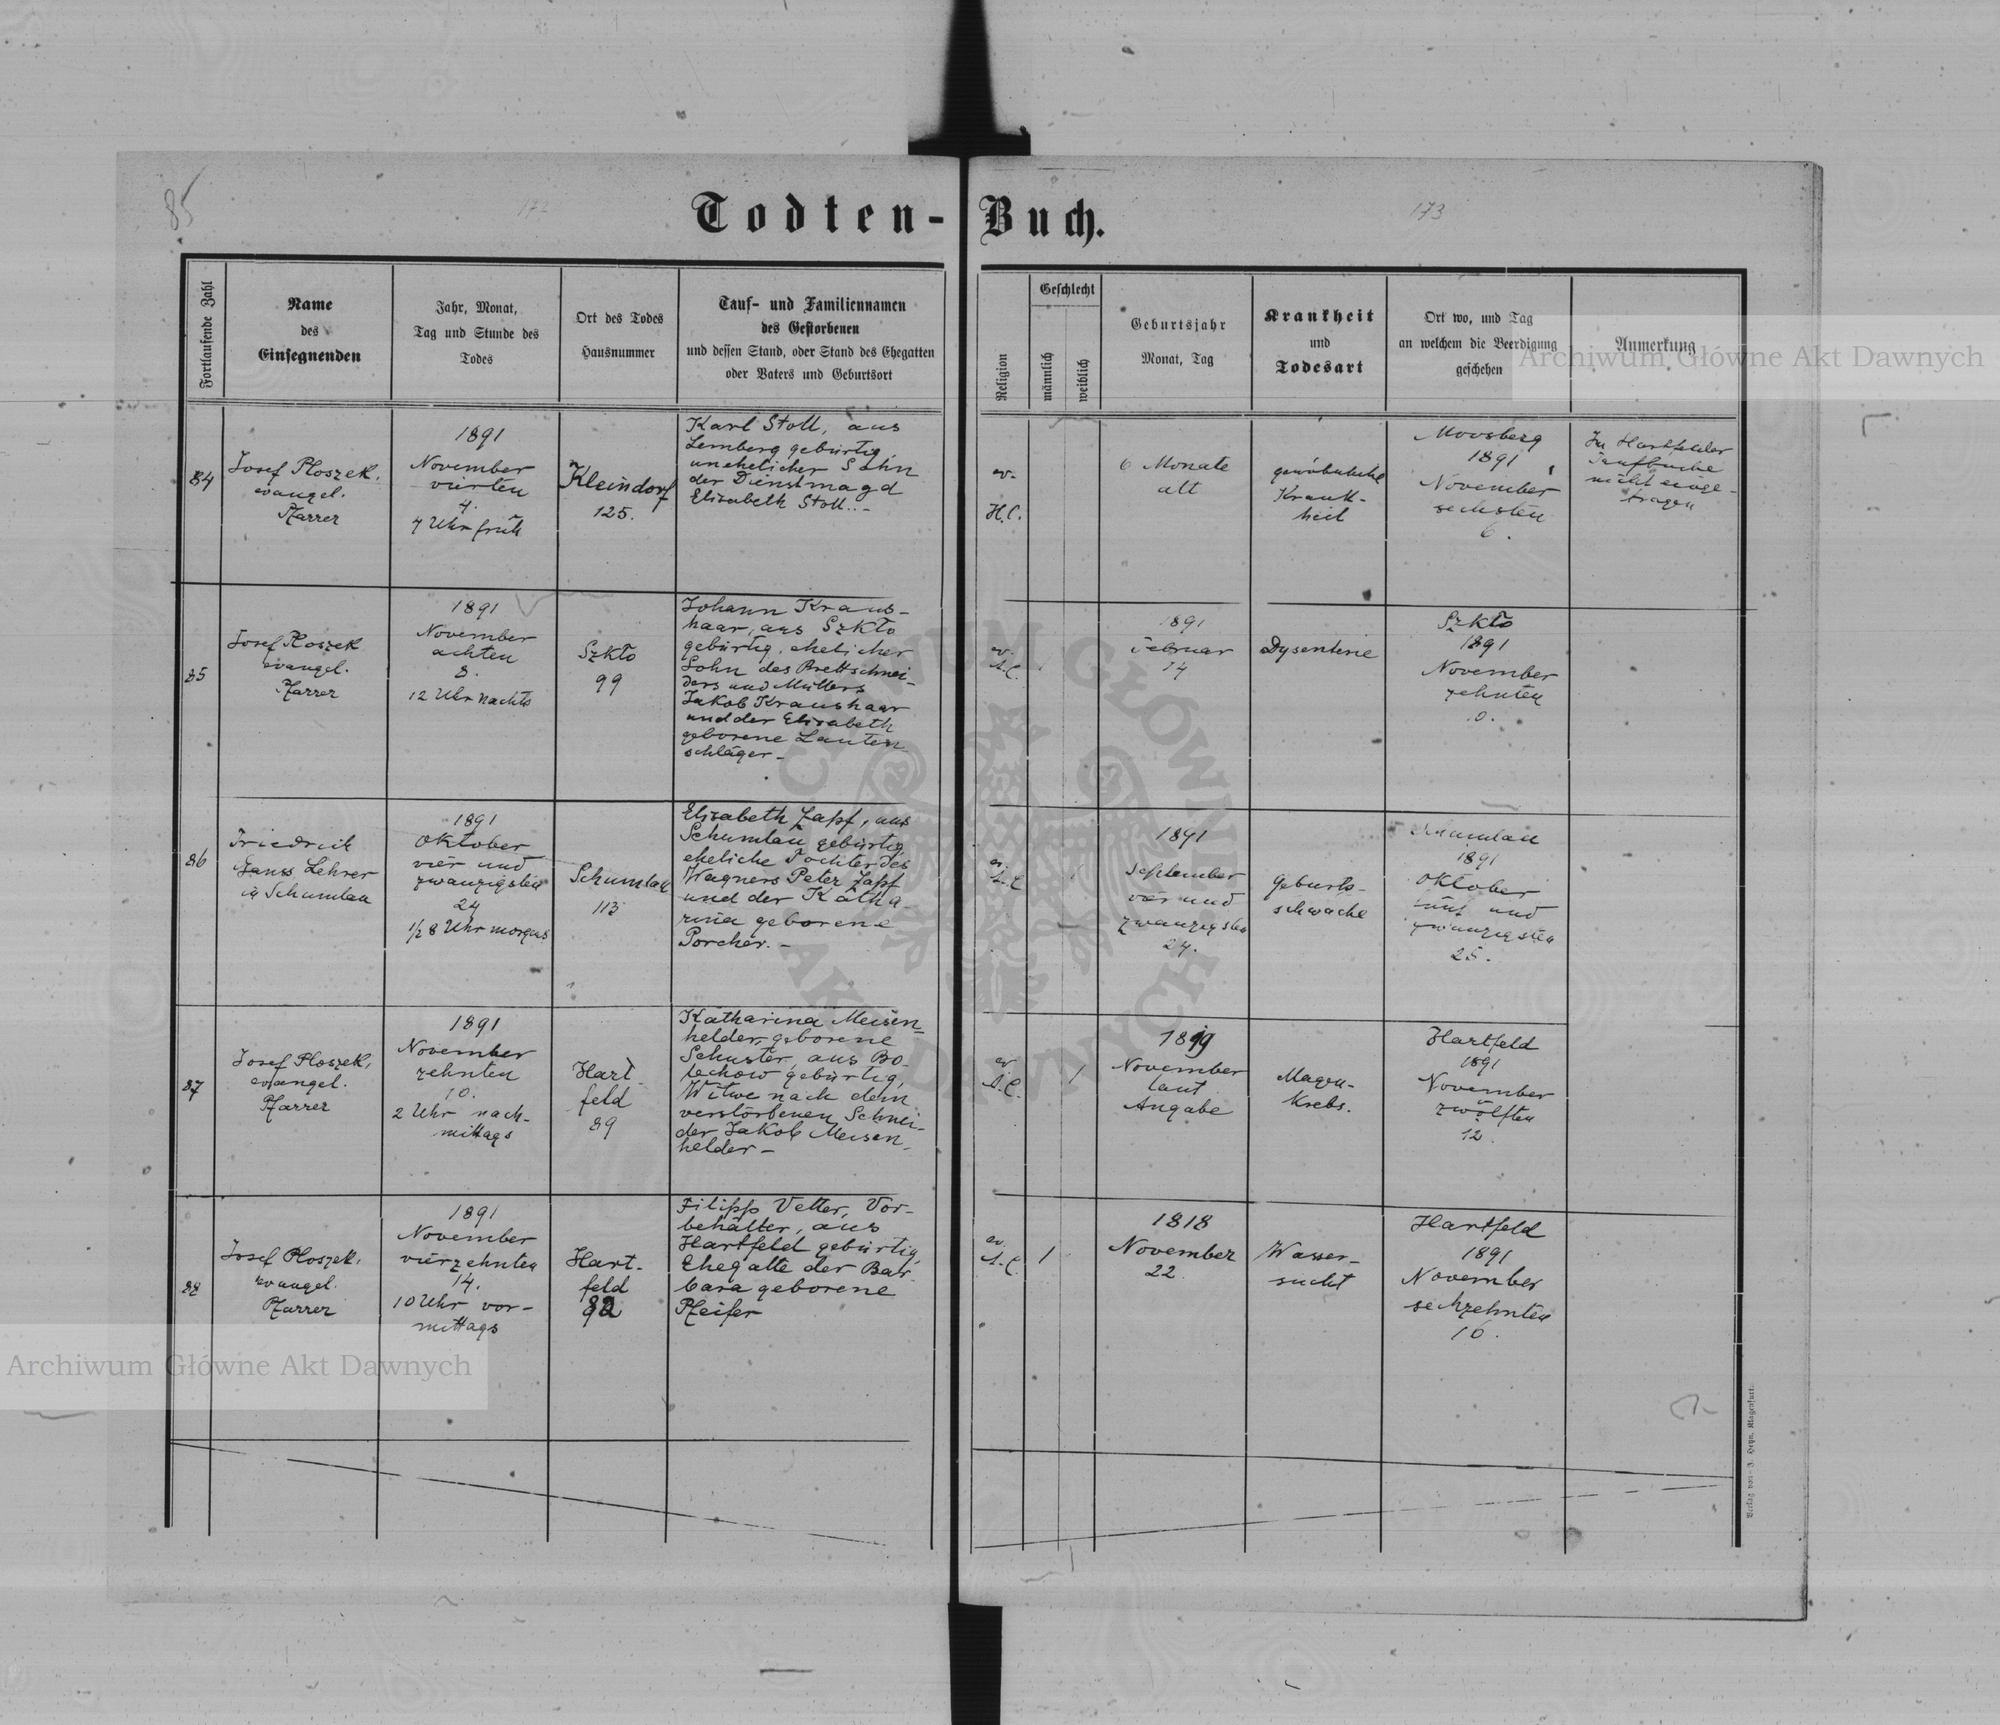 85
172
173
Todten-Buch.
Fortlaufende Zahl
Name
des
Einsegnenden
Jahr, Monat,
Tag und Stunde des
Todes
Ort des Todes
Hausnummer
Tauf- und Familiennamen
des Gestorbenen
und dessen Stand, oder Stand des Ehegatten
oder Vaters und Geburtsort
Religion
Geschlecht
männlich
weiblich
Geburtsjahr
Monat, Tag
Krankheit
und
Todesart
Ort wo, und Tag
an welchem die Beerdigung
geschehen
Anmerkung
84
Josef Ploszek,
evangel.
Pfarrer
1891
November
vierten
4.
4 Uhr früh
Kleindorf
125.
Karl Stoll, aus
Lemberg gebürtig,
unehelicher Sohn
der Dienstmagd
Elisabeth Stoll.-
ev.
H.C.
6 Monate
alt
gewöhnliche
Krank-
heit
Moosberg
1891
November
sechsten
6.
In Hartfelder
Taufbuche
nicht einge-
tragen
85
Josef Ploszek
evangel.
Pfarrer
1891
November
achten
8.
12 Uhr nachts
Szkło
99
Johann Kraus-
haar, aus Szkło
gebürtig, ehelicher
Sohn des Brettschnei-
ders und Müllers
Jakob Kraushaar
und der Elisabeth
geborene Lauten
schläger-
ev.
A.C.
1
1891
Februar
14
Dysenterie
Szkło
1891
November
zehnten
10.
86
Friedrich
Ganss Lehrer
in Schumlau
1891
Oktober
vier und
zwanzigsten
24
1/2 8 Uhr morgens
Schumlau
113
Elisabeth Zapf, aus
Schumlau gebürtig,
eheliche Tochter des
Wagners Peter Zapf
und der Katha-
rina geborene
Porcher.-
ev.
A.C.
1
1891
September
vier und
zwanzigsten
24.
Geburts-
schwäche
Schumlau
1891
Oktober
fünf und
zwanzigsten
25.
87
Josef Ploszek,
evangel.
Pfarrer
1891
November
zehnten
10.
2 Uhr nach-
mittags
Hart-
feld
89
Katharina Meisen-
helder, geborene
Schuster, aus Bo-
lechow gebürtig,
Witwe nach dem
verstorbenen Schnei-
der Jakob Meisen-
helder-
ev.
A.C.
1
1819
November
laut
Angabe
Magen-
krebs.
Hartfeld
1891
November
zwölften
12.
88
Josef Ploszek,
evangel.
Pfarrer
1891
November
vierzehnten
14.
10 Uhr vor-
mittags
Hart-
feld
Filipp Vetter, Vor-
behälter, aus
Hartfeld gebürtig,
Ehegatte der Bar-
bara geborene
Pfeifer
ev.
A.C.
1
1818
November
22
Wasser-
sucht
Hartfeld
1891
November
sechzehnten
16.
Verlag von J. Heyn, Klagenfurt.
Archiwum Główne Akt Dawnych
Archiwum Główne Akt Dawnych
ARCHIWUM GŁÓWNE AKT DAWNYCH